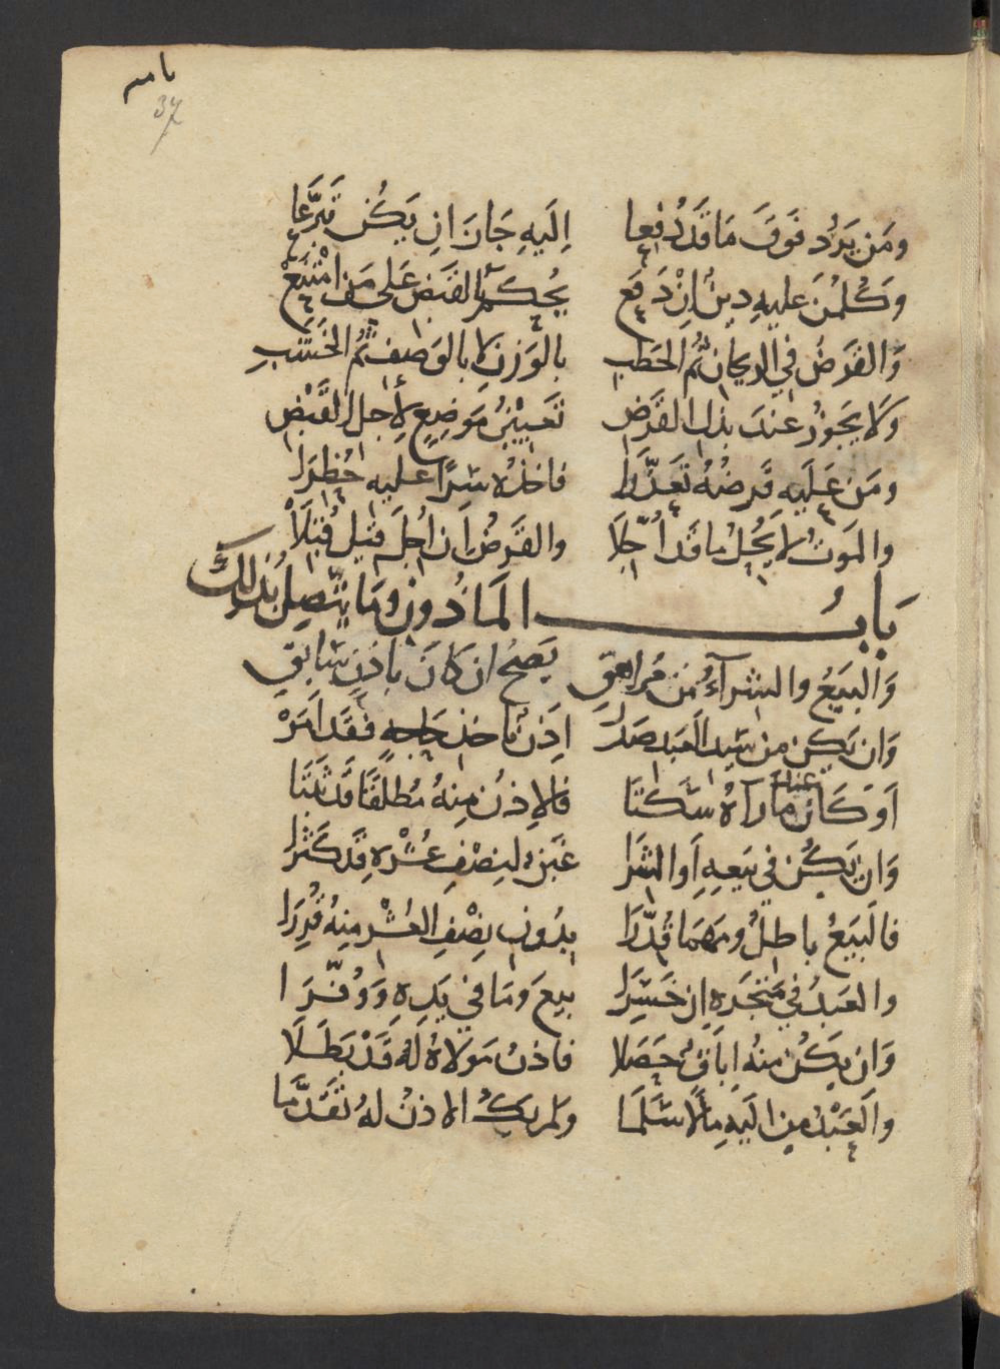 37
ومَن يَرُد فَوقَ مَا قَد دُفِعا اِلَيهِ جَازَ اِن يَكُن تَبَرَّعا
وَكُلمَن عَليهِ دينٌ اِنْ دَفَع يُحكَم بالقَبض عَلى مَن امْتَنَعْ
وَالقَرضُ في الريحان ثُم الحَطبِ بالوَزنِ لا بالوَصفِ ثُم الخَشَبِ
وَلَا يَجوزُ عندَ بذل القَرَضِ تَعيينُ مَوضِعٍ لأجل القَبْضِ
ومَن عَلَيهِ قَرضُهُ تَعَذَّرا فاخذُه سرًا عليه حُظِرَا
والموتُ لا يُحِلُ ما قَد اُجِّلَا والقَرضُ اِن اُجلَ قيل قُبِلَا
بَابُ المَاذُون وما يتّصِل بذلك
وَالبَيعُ والشرآءُ مِن مُراهقِ يَصحُ ان كَانَ باِذنٍ سَابِقِ
وَان يَكن من سَيِد العَبد صَدَرْ اِذنٌ باخذ حَاجةٍ فقَد اَمَرْ
اَو كَان عمّا رآهُ سَكَتَا فالاِذنُ مِنهُ مُطلقًا قَد ثَبَتَا
وَان يَكُن في بَيعِهِ اَو الشَرَا غَبنٌ لِنِصْفِ عُشْرِهِ قَد كَثَرا
فالَبيَعُ باطلٌ ومَهمَا قُدِّرَا بِدُونِ نِصْفِ العُشْر مِنهُ قُرِرَا
والعَبدُ في مَتْجَرهِ اِن خَسِرَا بيعَ ومَا في يَدِهِ وَوُفّرَا
وَان يَكُن مِنهُ اِباقٌ حَصَلا فاذنُ مَولاهُ لَهُ قَدْ بَطَلَا
والعَبْدُ مِن اِلَيهِ مالًا سَلَّمَا ولم يَكُ الاذنُ لهُ تَقَدَّمَا